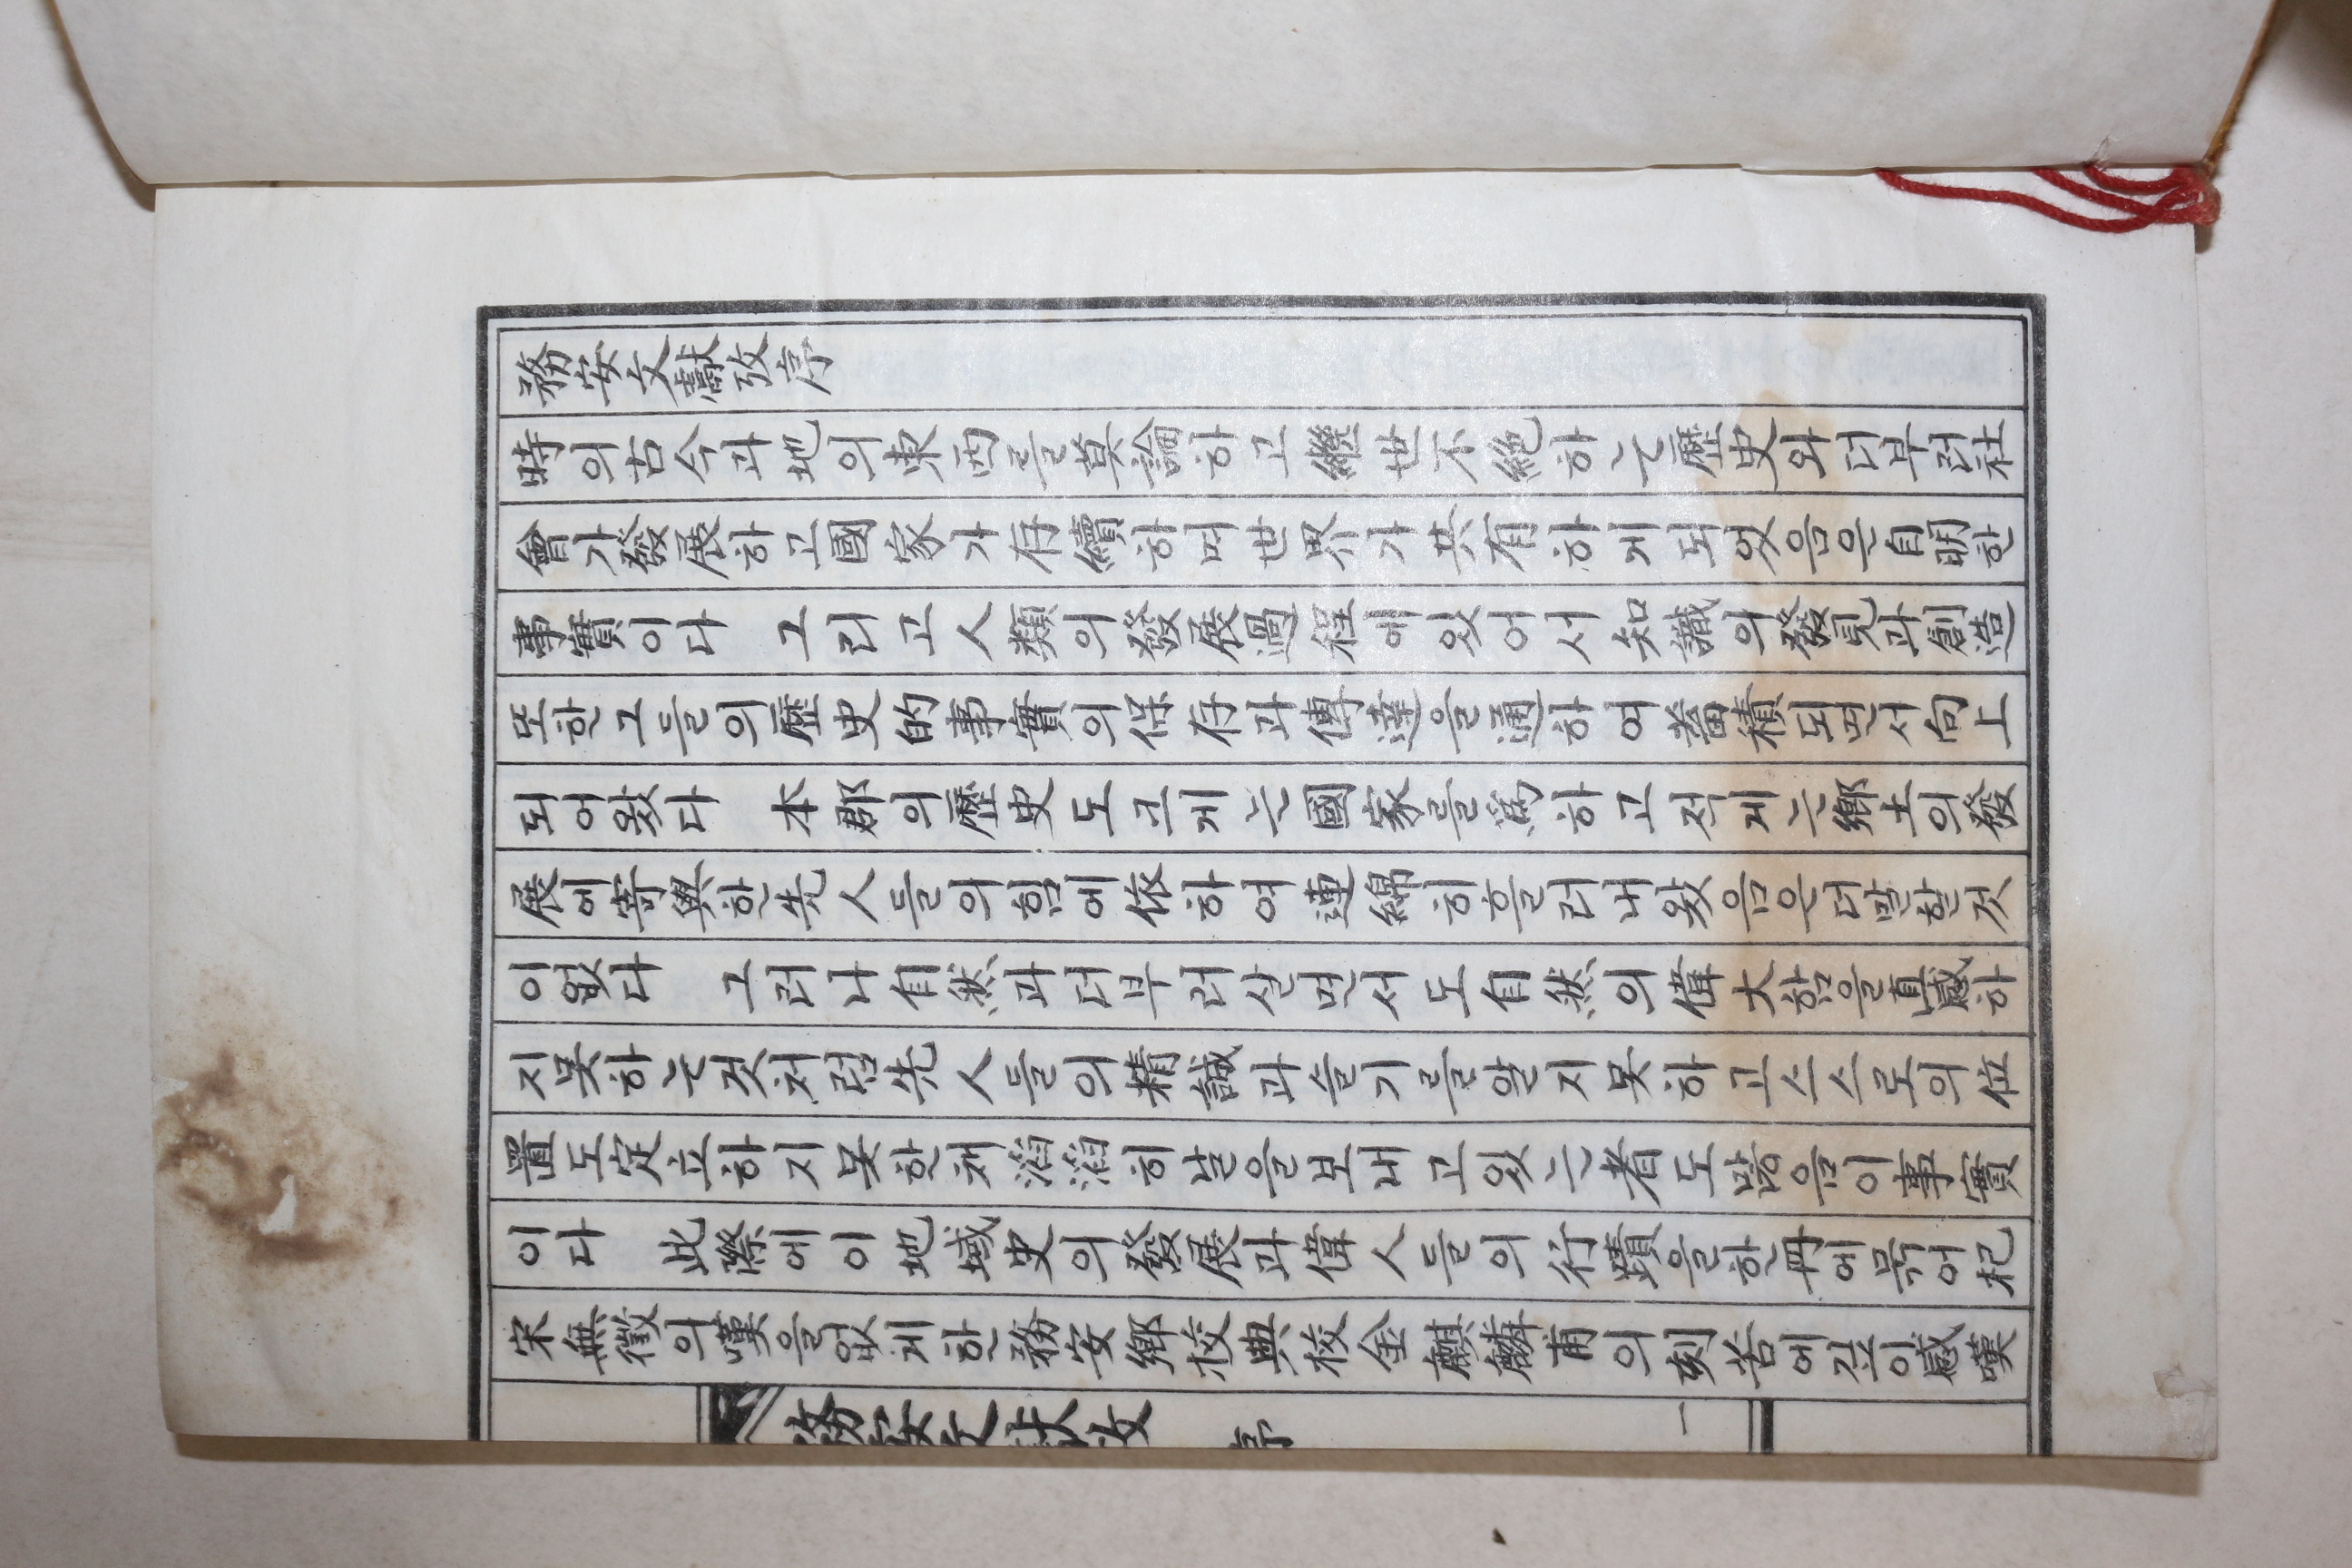 務安文獻攷序
時의古今과地의東西를莫論하고繼世不絶하는歷史와더부러社
會가發展하고國家가存續하며世界가共有하게되엿음은自明한
事實이다 그리고人類의發展過程에있어서知識의發見과創造
또한그들의歷史的事實의保存과傳達을通하여蓄積되면서向上
되어왔다 本郡의歷史도크게는國家를爲하고적게는鄕土의發
展에寄與한先人들의힘에依하여連綿히흘러내왔음은더말할것
이없다 그러나自然과더부러살면서도自然의偉大함을直感하
지못하는것처럼先人들의精誠과슬기를알지못하고스스로의位
置도定立하지못한채滔滔히날을보내고있는者도많음이事實
이다 此際에이地域史의發展과偉人들의行蹟을한冊에묶어杞
宋無徵의嘆을없게한務安鄕校典校金麒麟甫의刻苦에깊이感嘆
務安文献攷 序 一